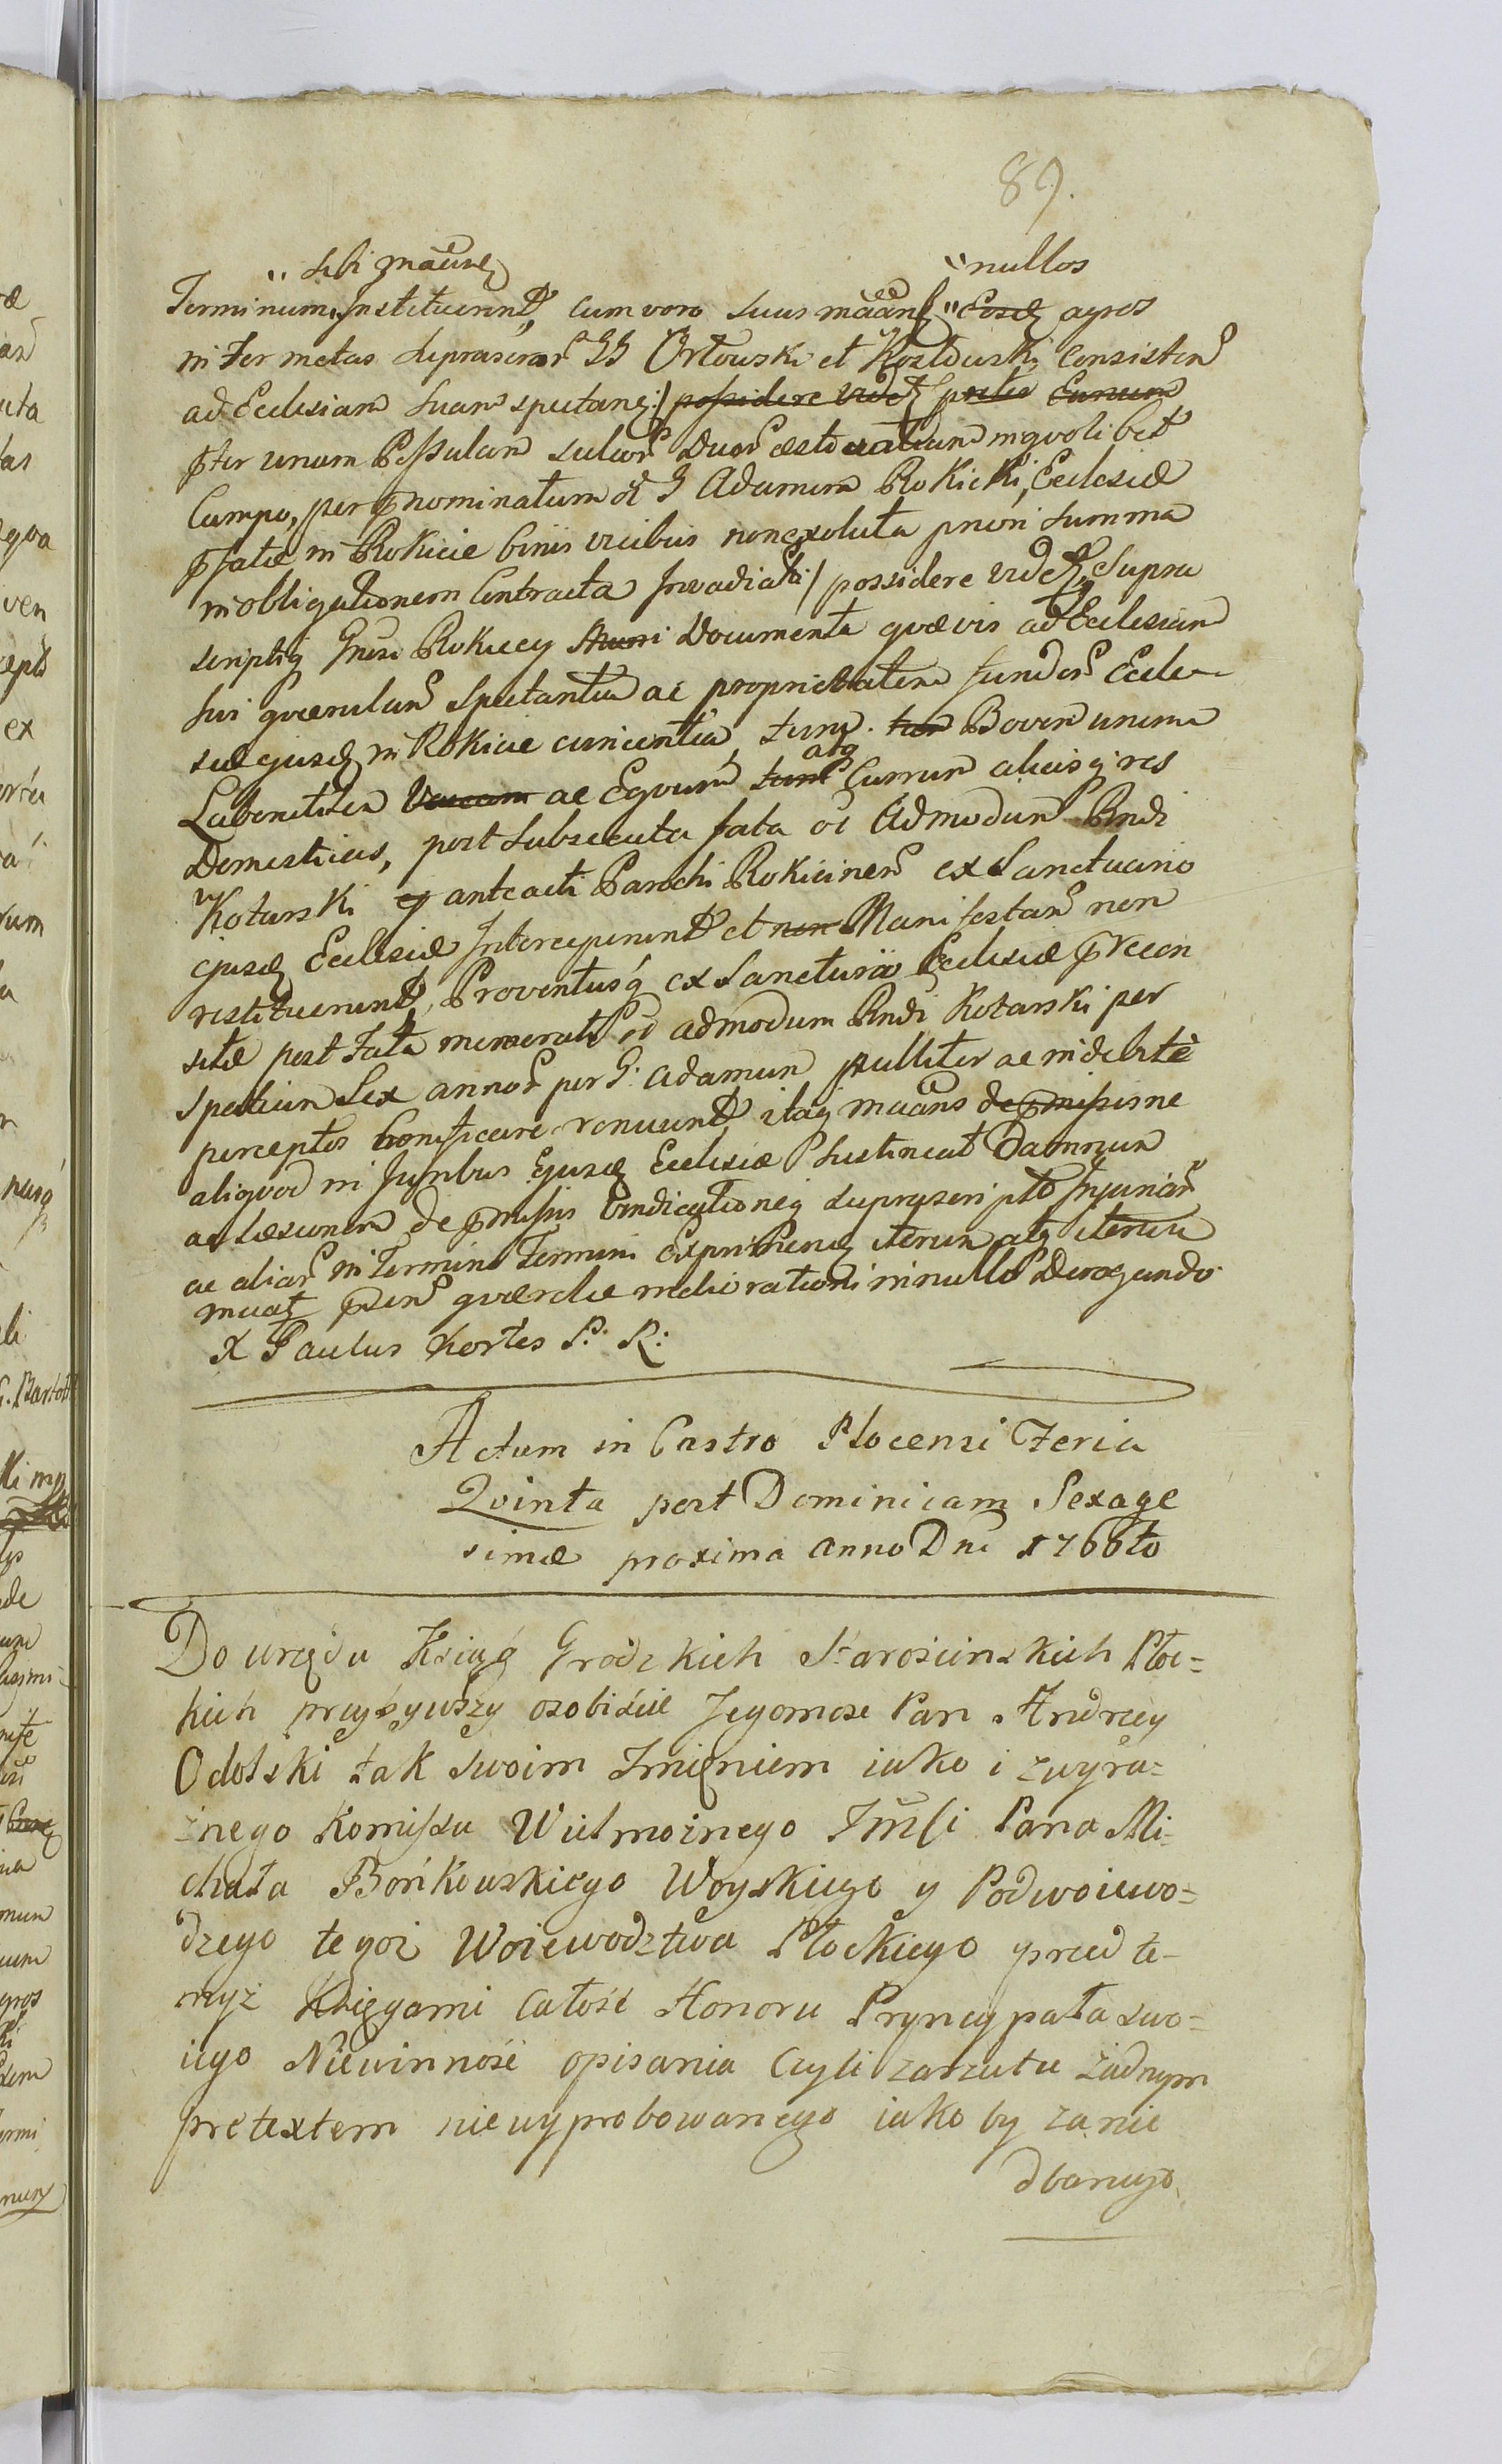 89.
" sibi maãnẽ " nullos
Terminum " Instituerunt, cum vero suus maãns " Eosdẽ agros
inter metas supraser GG Orłowski et Kozłowski Consisten
ad Ecclesiam suam spectanẽ:/ possidere videt prter Eunum
pter unum Pessulam sulcor Duor in quolibet
Campo, per pnominatum ol G Adamum Rokicki, Ecclesiæ
pfatæ in Rokicie binis vicibus non exoluta priori summa
in obligationem Contracta Invadiati:/ possidere videt, Supra
scriptiq Gnsi Rokiccy Documenta quævis ad Ecclesiam
sui querulan Spectantia ac proprietatem fundor Eccle-
siæ ejusdẽ in Rokicie concernentia, tum tum Bovem unum
Vaccam ac Equum tum atq Currum aliasq res
Domesticas, post subsecuta fata ol Admodum Rndi
Kotarski ej anteacti Parochi Rokicinen ex Sanctuario
ejusdẽ Ecclesiæ Interceperunt et non Manifestan non
restituerunt, Proventusq ex Ecclesiæ præcon
sitæ post Fata memorati ol admodum Rndi Kotarski per
Spatium Sex annor per G: Adamum nulliter ac indebitè
perceptos bonificare renuunt, itaq maãns de pmissis ne
aliquod in Juribus Ejusdẽ Ecclesiæ sustineat Damnum
ac læsionem de pmissis Vindicationeq suprascripto Injuriar
ac aliar in Termino Termini Exprimenẽ iterum atq iterum
pnsen querelæ meliorationi in nullo Derogando
X Paulus Kortes P. R:
Actum in Castro Plocensi Feria
Qvinta post Dominicam Sexage
simæ proxima Anno Dni 1766to
Do urzędu Ksiąg Grodzkich Starościnskich Płoc=
kich przybywszy osobiście Jegomosc Pan Andrzey
Odolski tak swoim Imięniem iako i zwyra=
źnego Komissu Wielmożnego Imści Pana Mi=
chała Bońkowskiego Woyskiego y Podwoiewo=
dzego tegoż Woiewodztwa Płockiego przed te-
myż Księgami Całość Honoru Pryncypała swo=
iego Niewinność opisania Czyli zarzutu żadnym
pretextem niewyprobowanego iako by zanie
dbanego